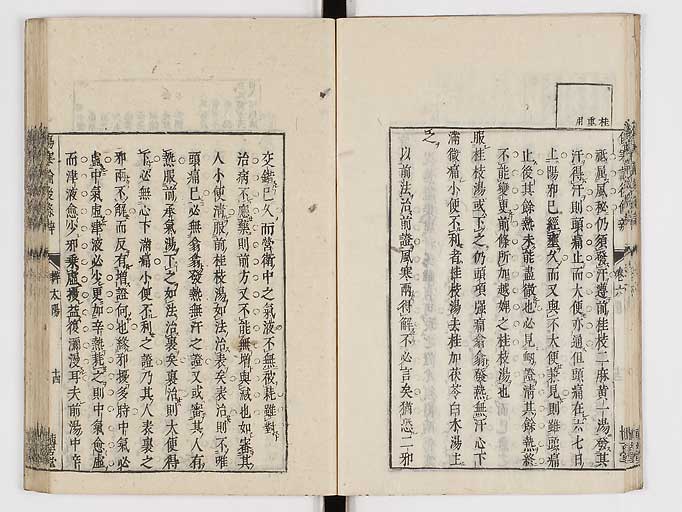 桂東用
祗風風秘仍須發汗遵前桂枝二麻黃一湯發其
汗得汗則頭痛止而大便亦通但頭痛在六七日
上陽邪已經重久而又與不大便兼見則雖頭痛
止後其餘熱未能盡徹也必見衂證清其餘熱終
不能變更前條所加越婢之桂枝湯也
服桂枝湯或下之仍頭項强痛翕翕發熱無汗心下
滿微痛小便不利者桂枝湯去桂加茯苓白木湯主
之
以前法治前證風寒兩得解不必言矣猶恐二邪
交鑠已久而營衛中之氣液不無被耗雖對
治病不應藥則前方又不能無增與減也如審其
人小便清服前桂枝湯如法治表矣表治則不唯
頭痛已必無翕翕發熱無汗之證又或審其人有
熱服前承氣湯下之如法治裏矣裏治則大便得
下必無心下滿痛小便不利之證乃其人表裏之
邪兩不解而反有增證何也終邪擾多時中氣必
虛中氣虛津液必少更加辛熱耗之則中氣愈虛
而津液愈少邪乘虛擾益復瀰漫耳夫前湯中辛
辨太陽
十四